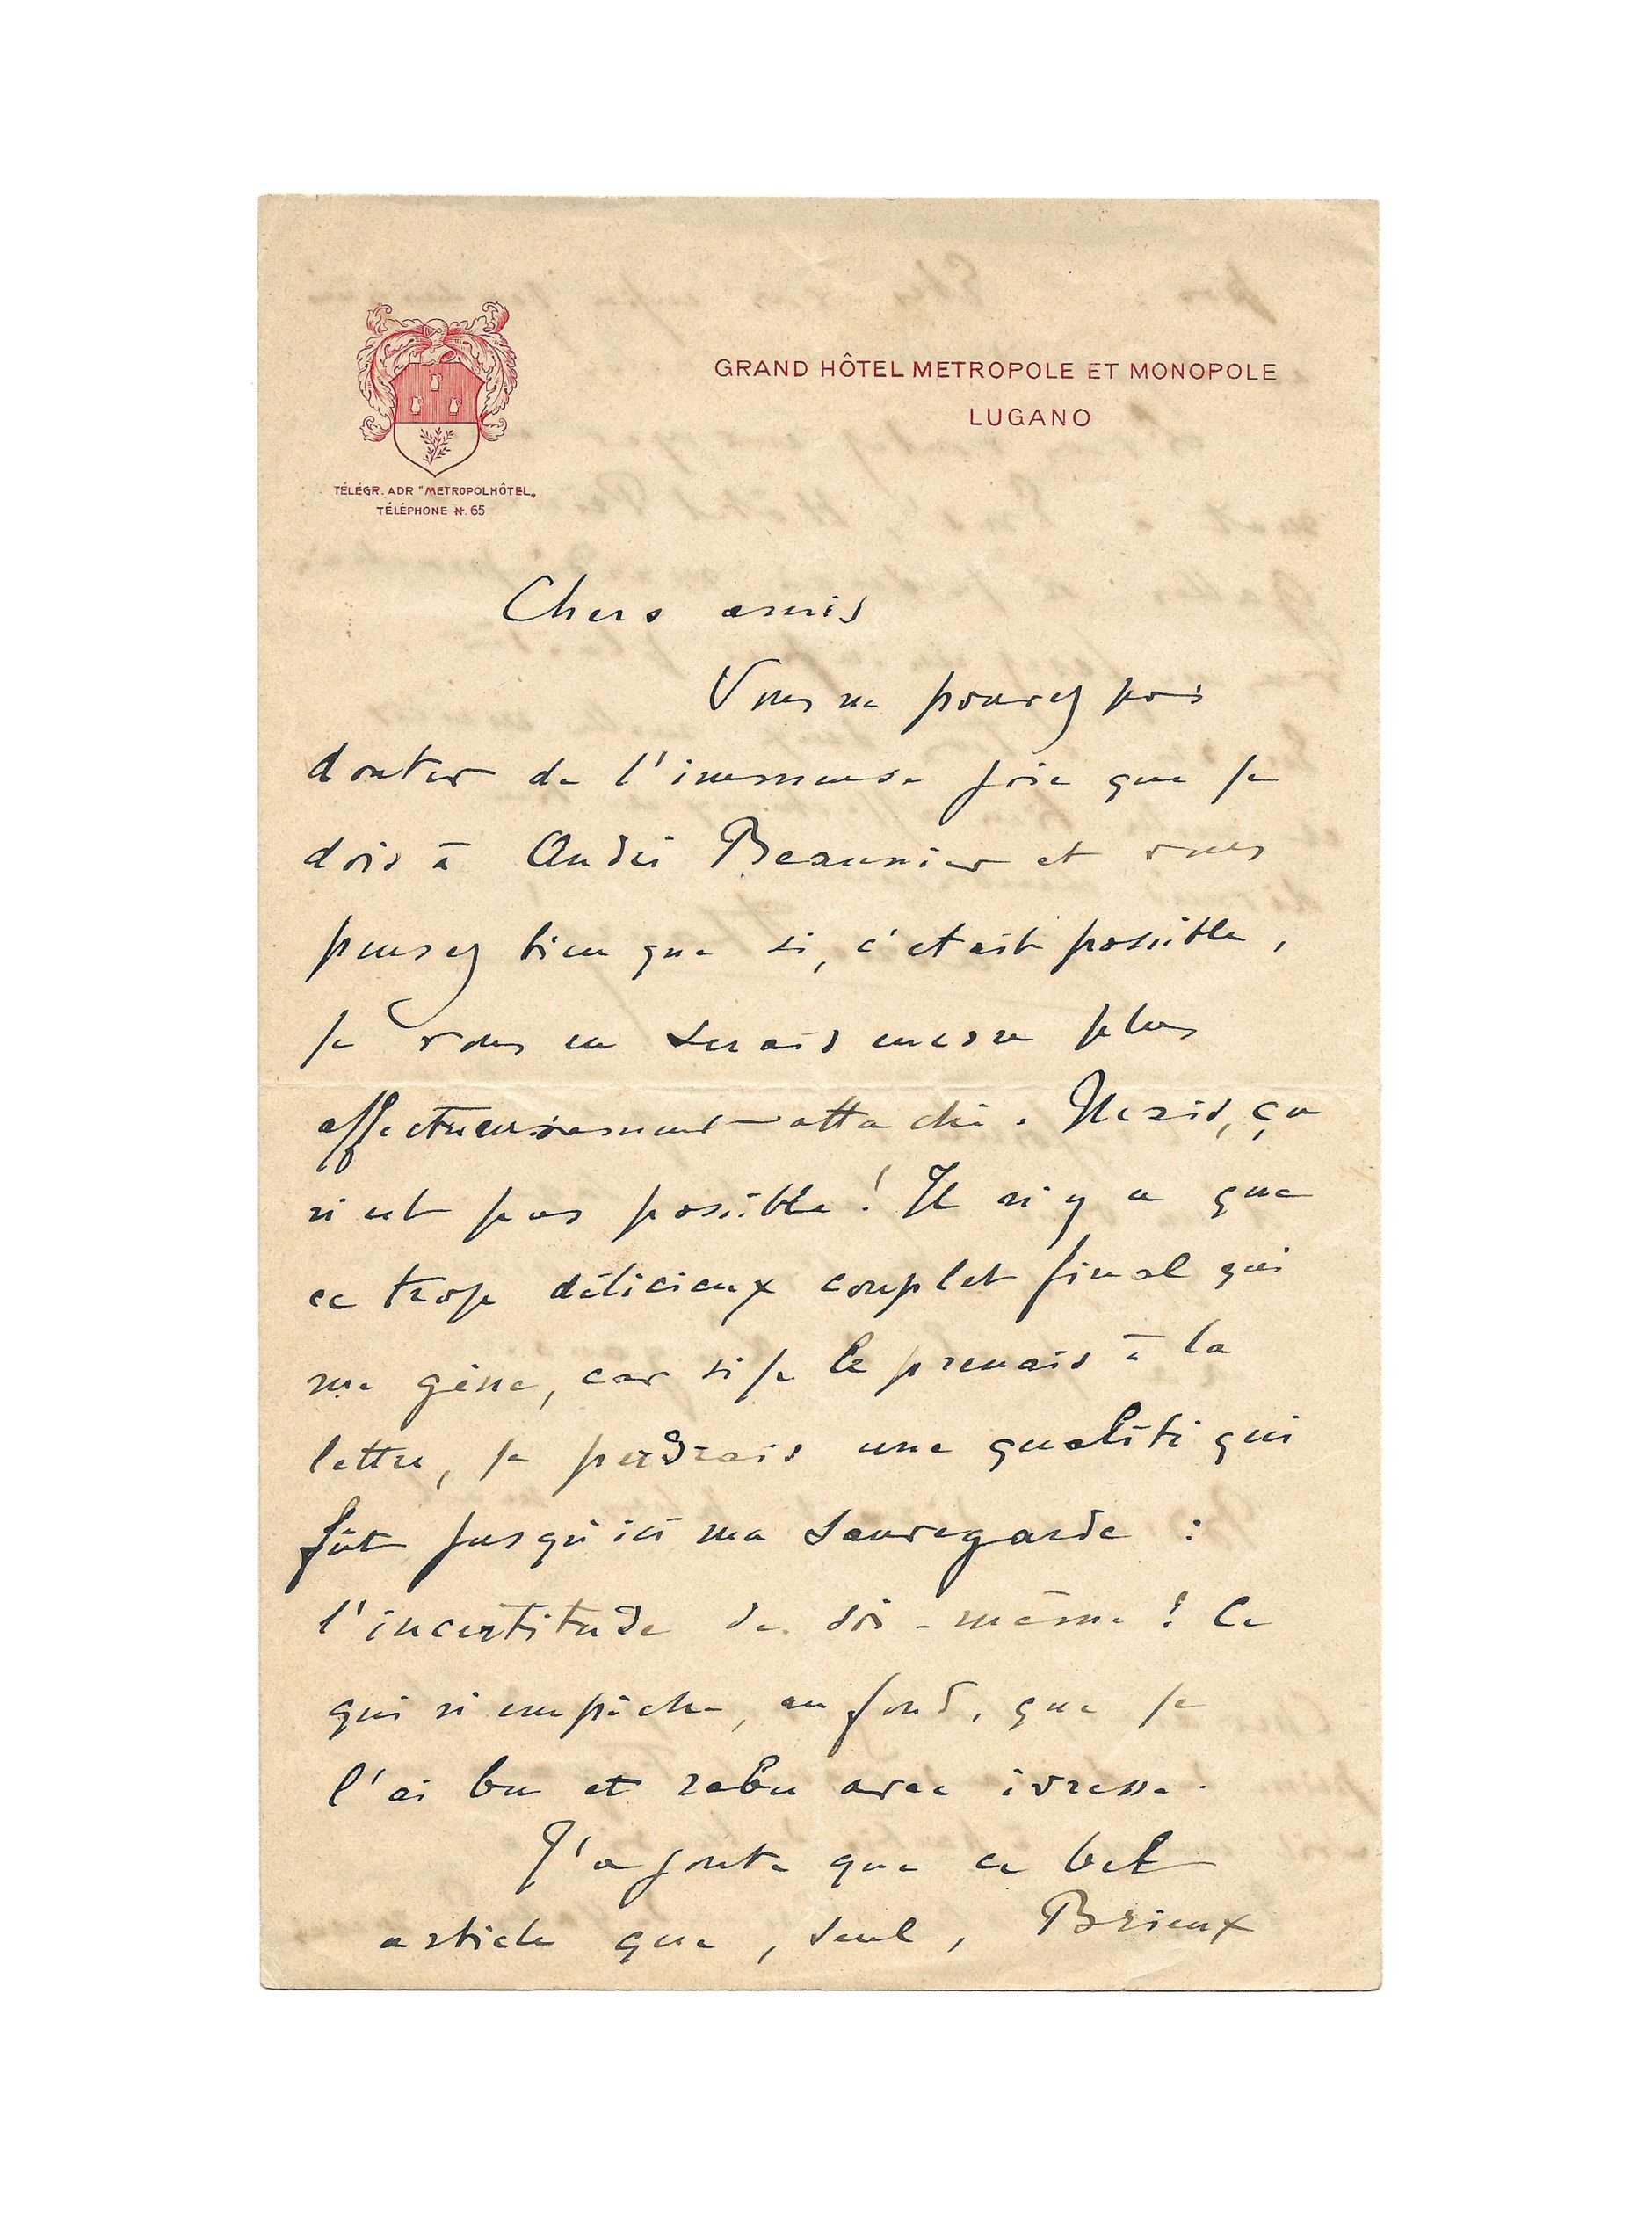 GRAND HÔTEL METROPOLE ET MONOPOLE
LUGANO
TÉLÉGR. ADR "METROPOLHÔTEL„
TÉLÉPHONE N. 65
Chers amis
Vous ne pouvez pas
douter de l'immense joie que je
dois à André Beaunier et vous
pensez bien que si, c'etait possible,
je vous en serais encore plus
affectueusement attaché. Mais, ça
n'est pas possible! Il n'y a que
ce trop délicieux couplet final qui
me gêne, car si je le prenais à la
lettre, je perdrais une qualité qui
fût jusqu'ici ma sauvegarde :
l'incertitude de soi-même! Ce
qui n'empêche, au fond, que je
l'ai bu et rebu avec ivresse.
J'ajoute que ce bel
article que, seul, Brieux